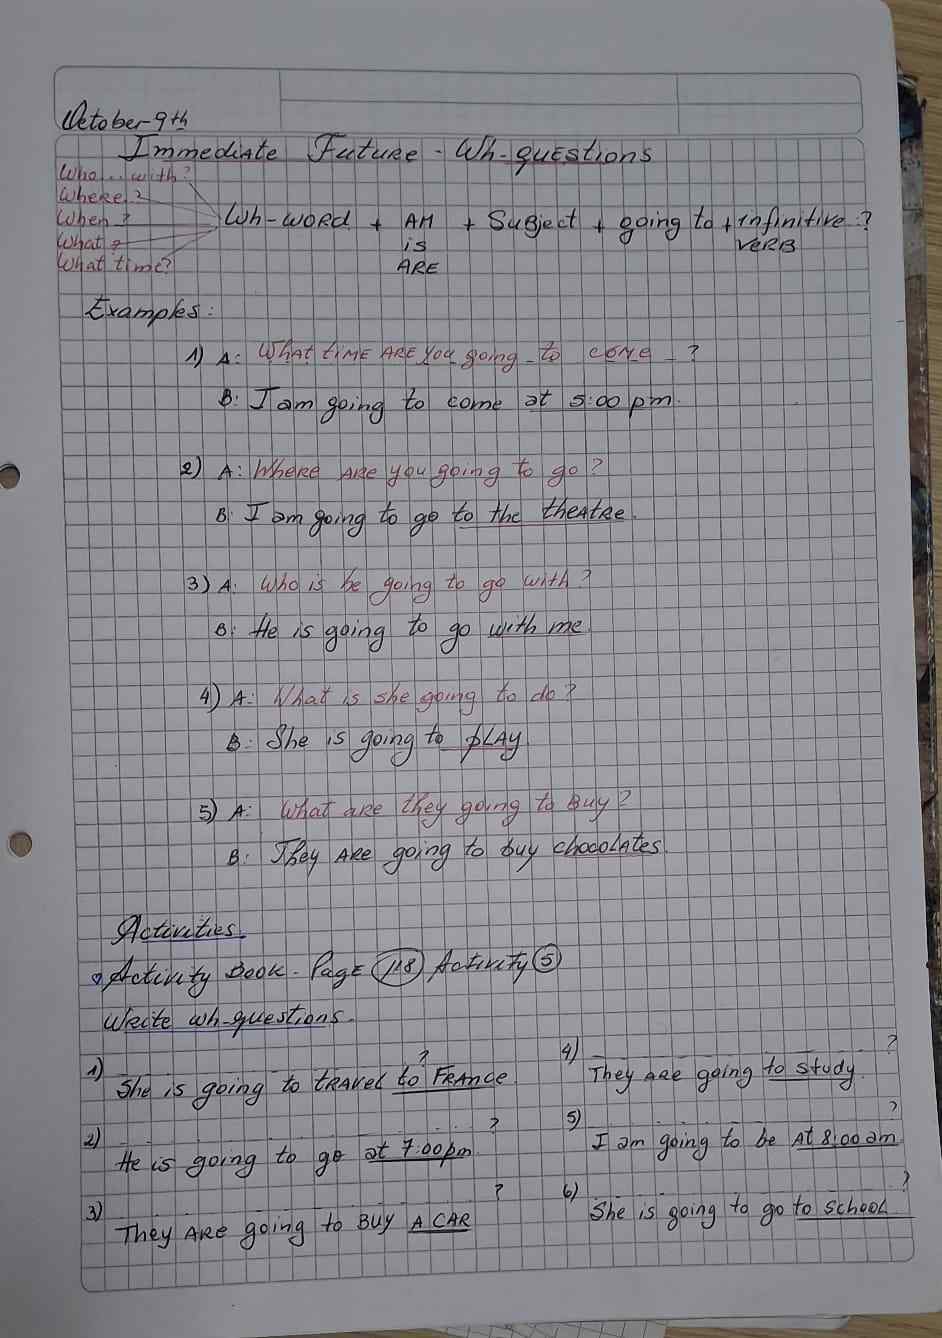 October-9th
Immediate Future - Wh-questions
Who...with?
Where?
When?
What?
What time?
Wh-word + AM + Subject + going to + infinitive?
is VERB
ARE
Examples:
1) A: What time ARE you going to come ?
B: I am going to come at 5:00 pm.
2) A: Where ARE you going to go?
B: I am going to go to the theatre.
3) A: Who is he going to go with?
B: He is going to go with me.
4) A: What is she going to do?
B: She is going to play.
5) A: What are they going to Buy?
B: They ARE going to buy chocolates.
Activities.
Activity Book. Page 118 Activity 5
Write wh-questions.
1) ?
She is going to travel to France.
2) ?
He is going to go at 7:00pm.
3) ?
They ARE going to BUY A CAR
4) ?
They are going to study.
5) ?
I am going to be at 8:00am
6) ?
She is going to go to school.